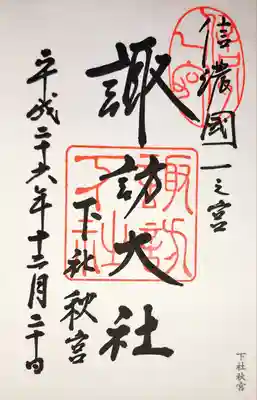 信濃國一之宮
諏訪大社
下社秋宮
平成二十六年十二月二十日
諏訪
下社秋宮